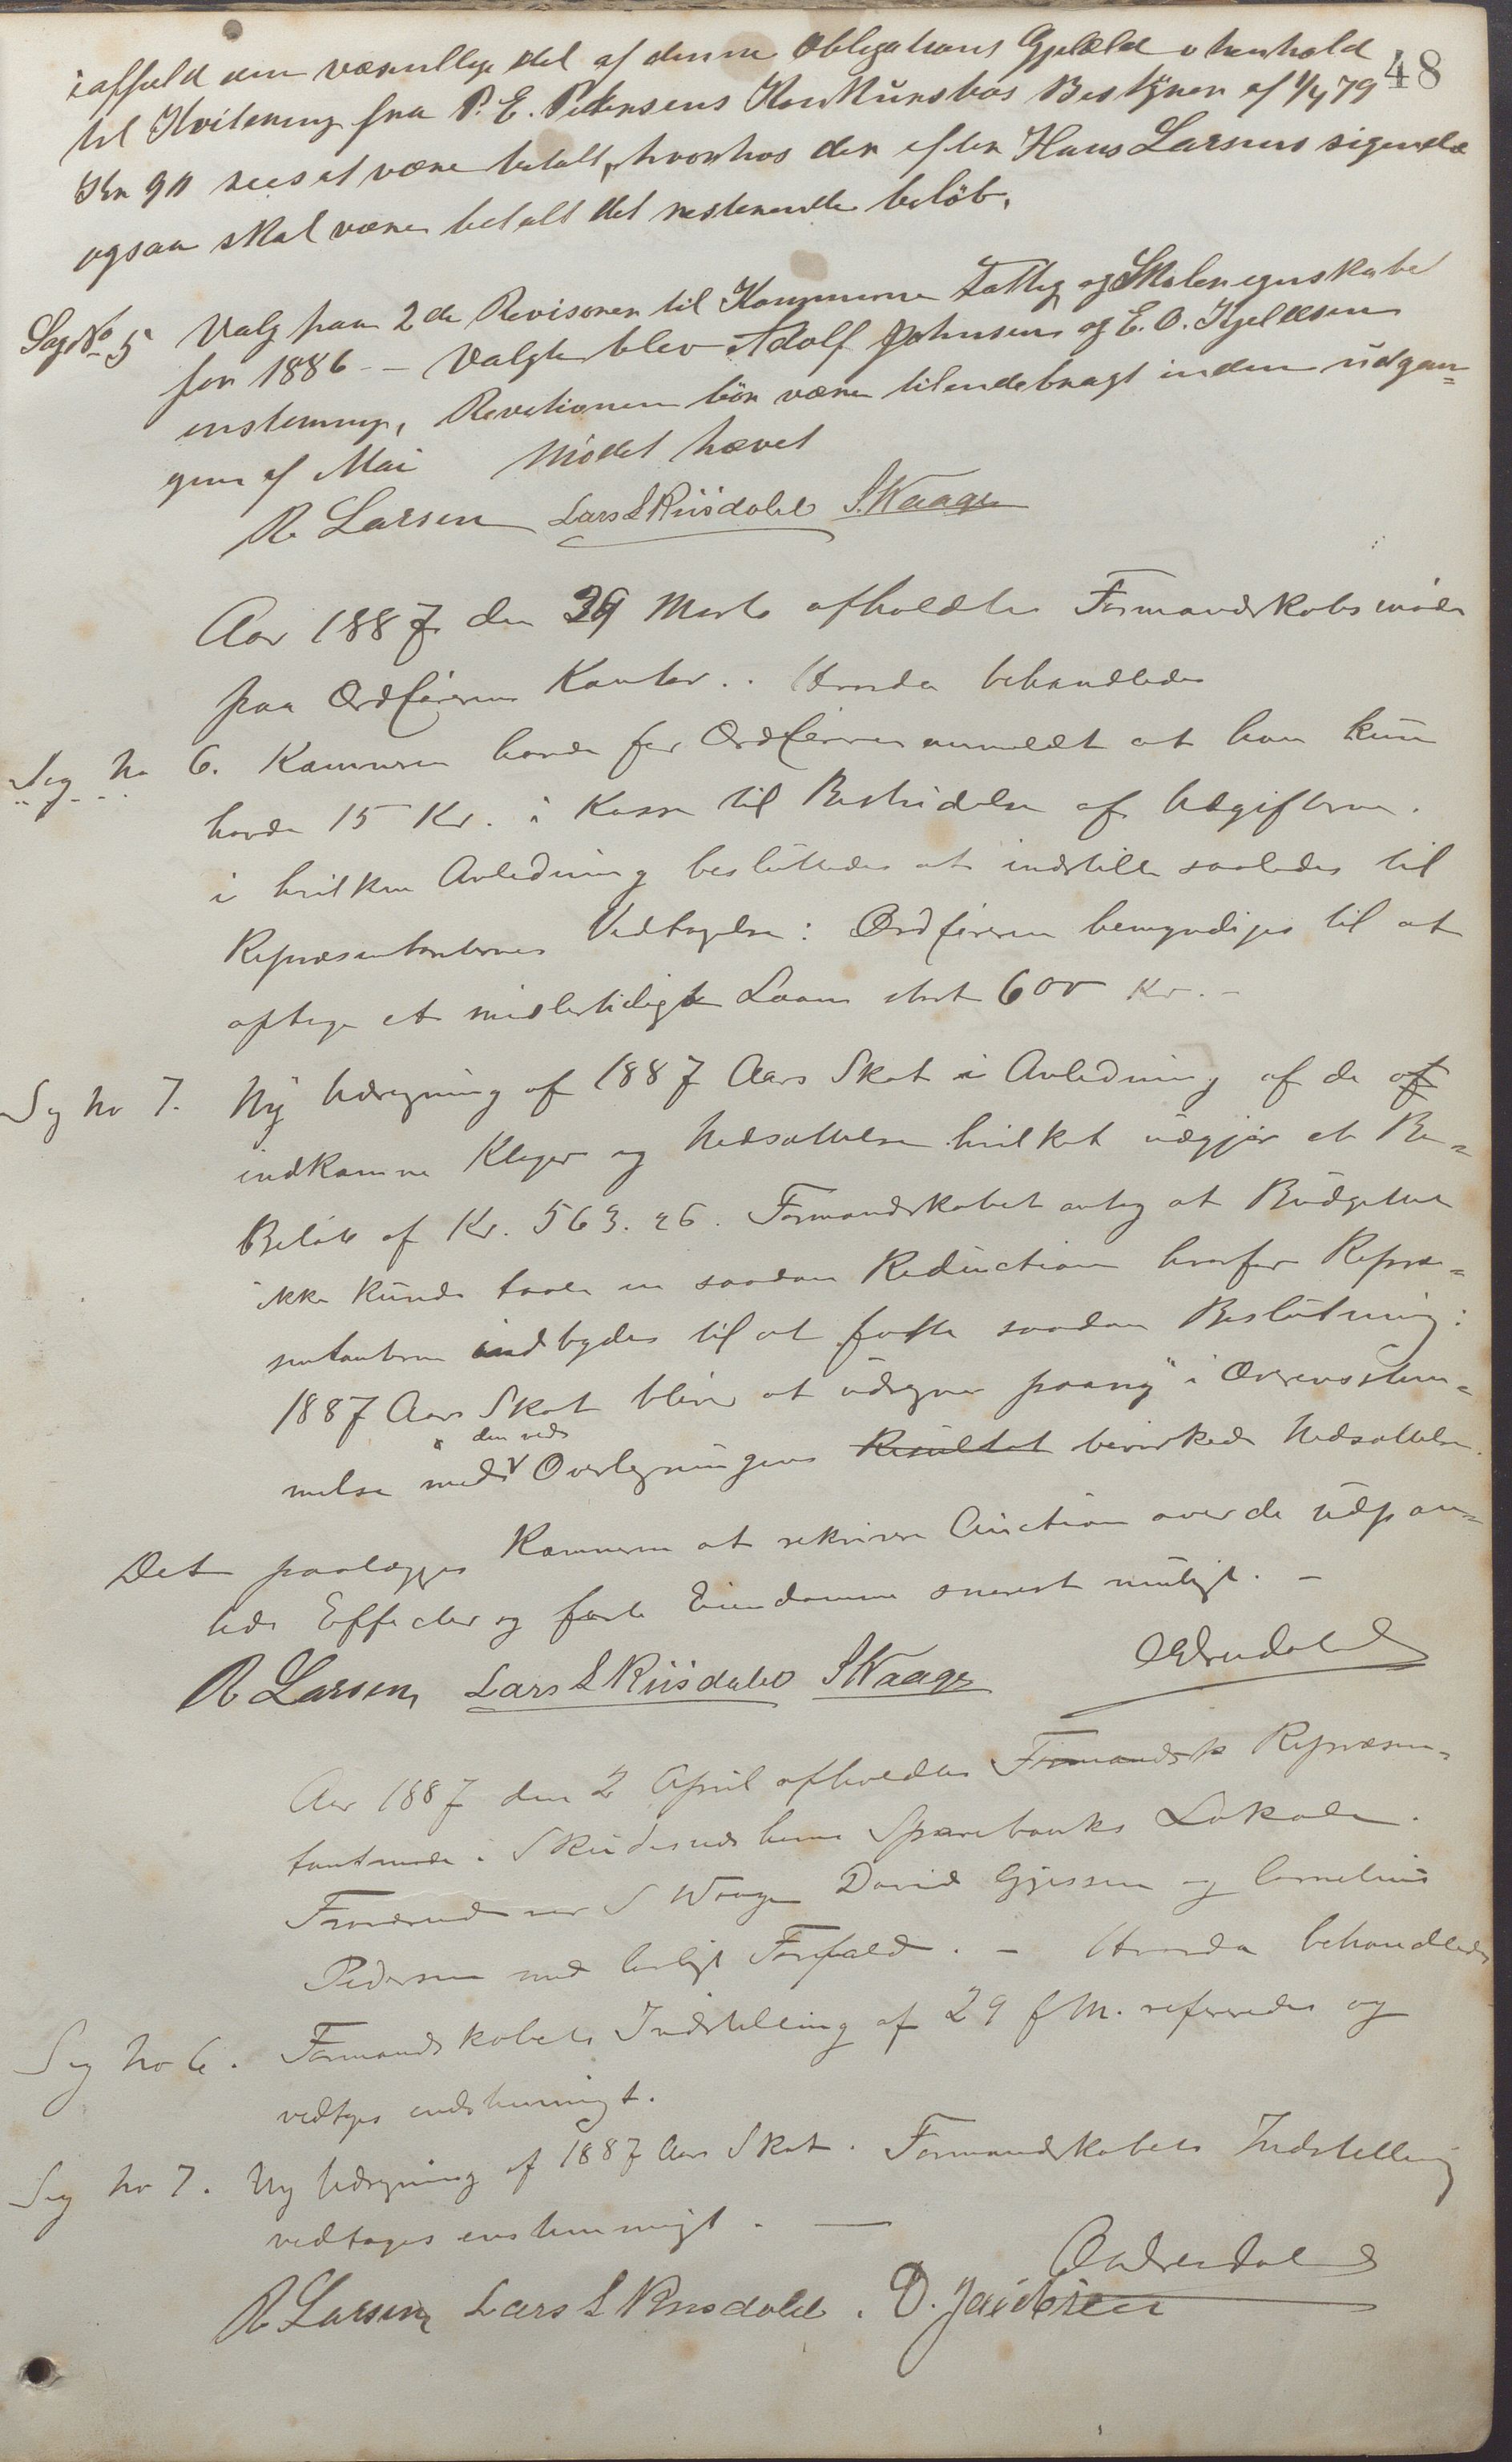 48
iafhuld den væsentlige del af denne Obligations Gjæld i henhold
til Kvitering fra P. E. Pedersens Konkursbos Bestyrer af 1/4 79
Kr 90 sees at være betalt, hvorhos der efter Hans Larsens sigende
ogsaa skal være betalt det resterende beløb.
Sag No 5 Valg paa 2de Revisorer til Kommune Fattig og Skoleregnskabe
for 1886 — Valgte blev Adolf Johnsen og E. O. Kjeldsen
enstemmig, Revetionen bör være tilendebragt inden udgan=
gen af Mai Mödet hævet
R. Larsen Lars L Riisdahl S. Waage
Aar 1887 den 29 Marts afholdtes Formandskabsmøde
paa Ordførerens Kontor. Hvorda behandledes
Sag No 6. Kæmneren havde for Ordføreren anmeldt at han kun
havde 15 Kr. i Kasse til Bestridelse af Udgifterne.
i hvilken Anledning besluttedes at indstille saaledes til
Repræsentanternes Vedtagelse: Ordføreren bemyndiges til at
optage et midlertidigt Laan stort 600 Kr. —
Sag No 7. Ny Udregning af 1887 Aars Skat i Anledning af de af
indkomne Klager og Nedsættelse hvilket udgjør et Be=
Beløb af Kr. 563.26. Formandskabet antog at Budgettet
ikke kunde taale en saadan Reduction hvorfor Repræ=
sentanterne indbydes til at fatte saadan Beslutning:
1887 Aars Skat bliver at udregne paany i Overensstem=
melse med den ved Overligningens Resultat bevirkede Nedsættelse.
Det paalægges Kæmneren at rekvirere Auction over de udpan=
tede Effecter og faste Eiendomme snarest muligt. —
R Larsen Lars L Riisdahl S Waage
Aar 1887 den 2 April afholdtes Formandsk Repræsen=
tantmøde i Skudesneshavns Sparebanks Lokale.
Fraværende var S Waage David Gjessen og Cornelius
Pedersen med lovligt Forfald. — Hvorda behandledes
Sag No 6. Formandskabets Indstilling af 29 f M. refereredes og
vedtages endstemmigt.
Sag No 7. Ny Udregning af 1887 Aars Skat. Formandskabets Indstilling
vedtages enstemmigt. —
R Larsen Lars L Riisdahl. D. Jacobsen